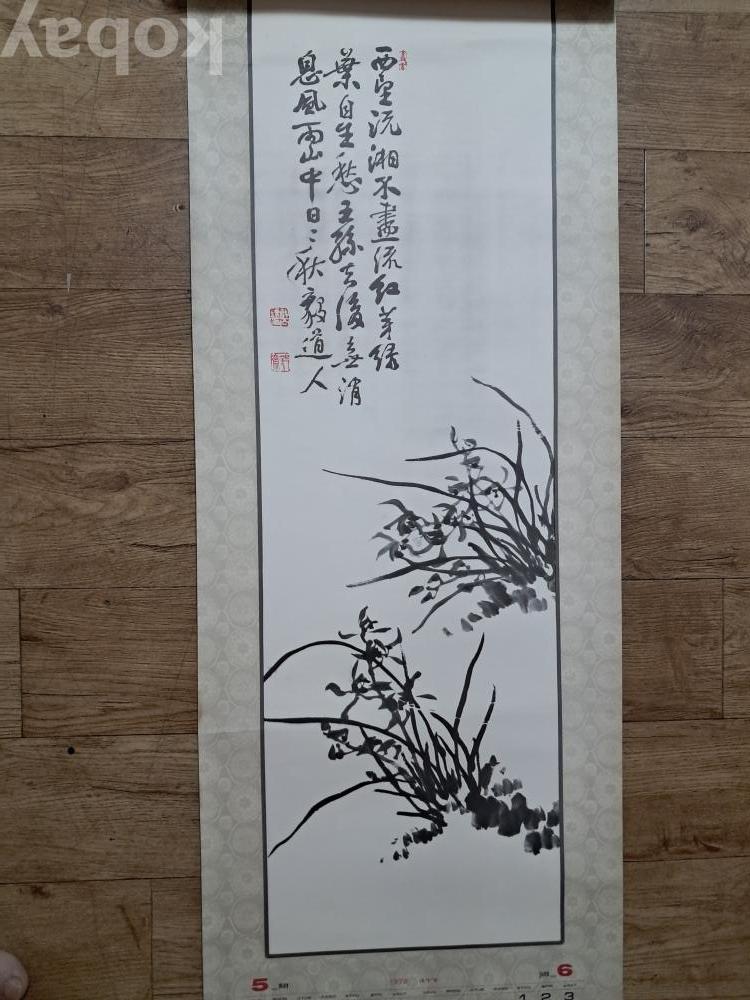 kobay
西望沅湘不盡流紅芽緑
葉自生愁王孫去後無消
息風雨山中日〻秋毅道人
5 1978 6
1 2 3